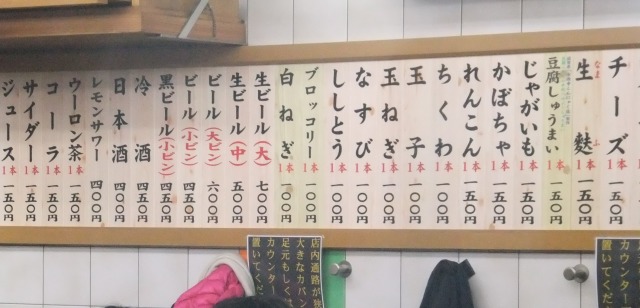 チーズ 1本 一五〇円
生麩 なまふ 1本 一五〇円
豆腐しゅうまい 1本 一五〇円
じゃがいも 1本 一五〇円
かぼちゃ 1本 一五〇円
れんこん 1本 一五〇円
ちくわ 1本 一〇〇円
玉子 1本 一〇〇円
玉ねぎ 1本 一〇〇円
なすび 1本 一〇〇円
ししとう 1本 一〇〇円
ブロッコリー 1本 一〇〇円
白ねぎ 1本 一〇〇円
生ビール(大) 七〇〇円
生ビール(中) 五〇〇円
ビール(大ビン) 六〇〇円
ビール(小ビン) 四五〇円
黒ビール(小ビン) 四五〇円
冷酒 1本
日本酒 四〇〇円
レモンサワー 四〇〇円
ウーロン茶 1本 一五〇円
コーラ 1本 一五〇円
サイダー 1本 一五〇円
ジュース 1本 一五〇円
店内通路が狭
大きなカバン
足元もしくは
カウンター
置いてくだ
カウンター
置いてくだ